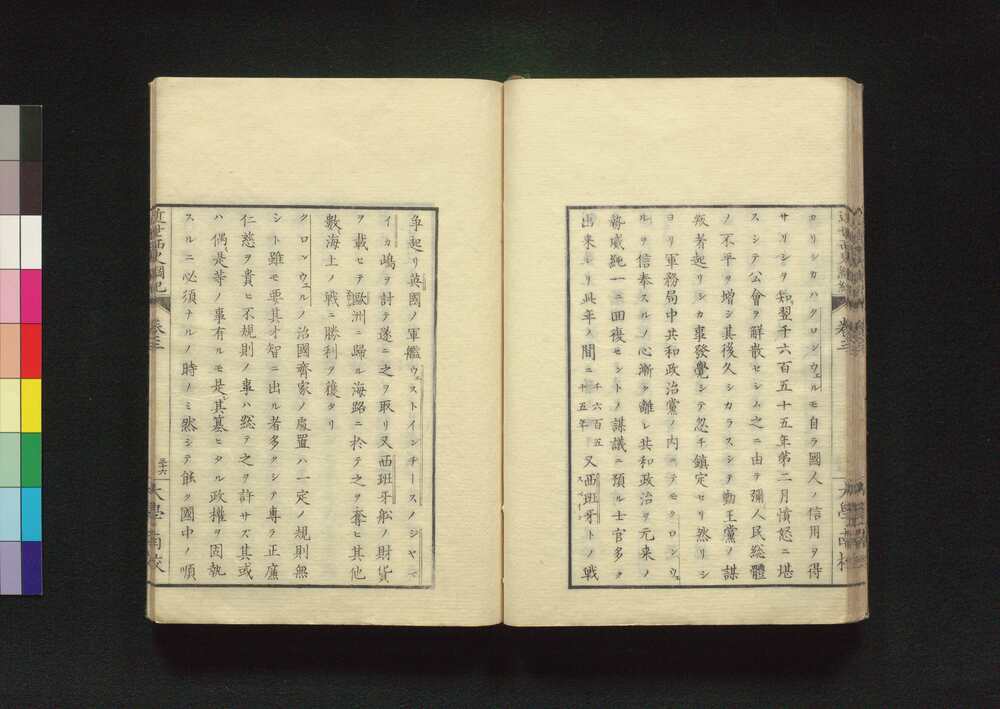 カリシカハクロンウェルモ自ラ國人ノ信用ヲ得
サリシヲ知翌千六百五十五年第二月憤怒ニ堪
スシテ公會ヲ解散セシム之ニ由テ彌人民総體
ノ不平ヲ増シ其後久シカラスシテ勤王黨ノ謀
叛者起リシカ事發覺シテ忽チ鎮定セリ然リシ
ヨリ軍務局中共和政治黨ノ内ニテモクロンウェ
ルヲ信奉スルノ心漸ク離レ共和政治ヲ元来ノ
純一ニ回復セントノ謀議ニ預ル士官多ク
出来リ此年ノ間ニ千六百五十五年又西班牙トノ戦
争起リ英國ノ軍艦ウェストインヂースノジヤマ
イカ嶋ヲ討テ遂ニ之ヲ取リ又西班牙舩ノ財貨
ヲ載セテ歐洲ニ歸ル海路ニ於テ之ヲ奪ヒ其他
數海上ノ戦ニ勝利ヲ獲タリ
クロンウェルノ治國齊家ノ處置ハ一定ノ規則無
シト雖モ要其才智ニ出ル者多クシテ專ラ正廉
仁慈ヲ貴ヒ不規則ノ事ハ総テ之ヲ許サズ其或
ハ偶是等ノ事有ルモ是其簒ヒタル政權ヲ固執
スルニ必須ナルノ時ノミ然シテ能ク國中ノ順
近世西史綱紀
卷三
三十六
大學南校